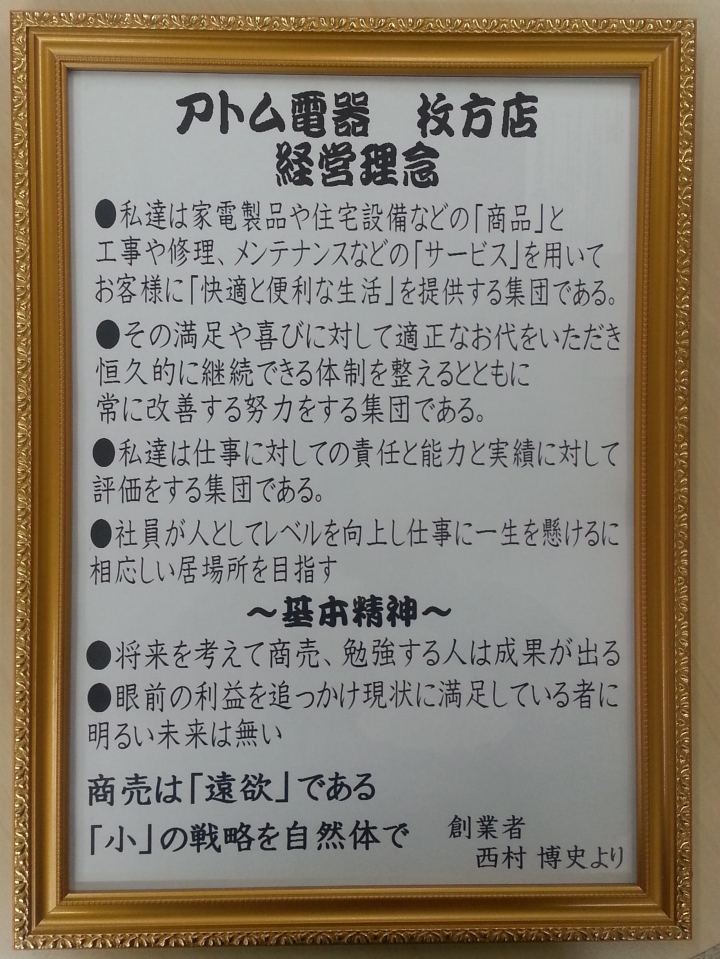 アトム電器　枚方店
経営理念
●私達は家電製品や住宅設備などの「商品」と
工事や修理、メンテナンスなどの「サービス」を用いて
お客様に「快適と便利な生活」を提供する集団である。
●その満足や喜びに対して適正なお代をいただき
恒久的に継続できる体制を整えるとともに
常に改善する努力をする集団である。
●私達は仕事に対しての責任と能力と実績に対して
評価をする集団である。
●社員が人としてレベルを向上し仕事に一生を懸けるに
相応しい居場所を目指す
～基本精神～
●将来を考えて商売、勉強する人は成果が出る
●眼前の利益を追っかけ現状に満足している者に
明るい未来は無い
商売は「遠欲」である
「小」の戦略を自然体で
創業者
西村 博史より